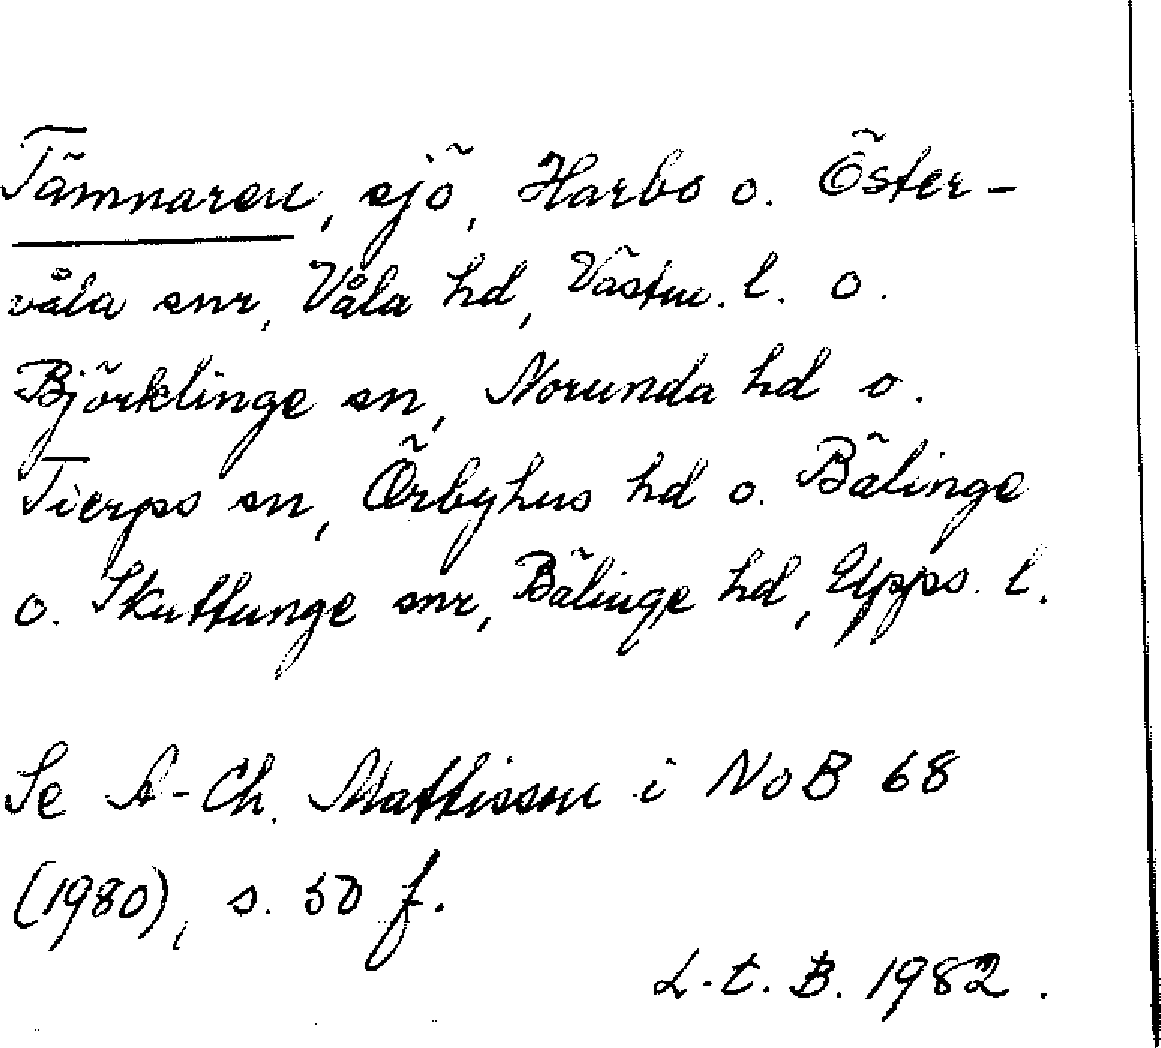 Tämnaren, sjö, Harbo o. Öster-
våla snr, Våla hd, Västm. l. o.
Björklinge sn, Norunda hd o.
Tierps sn, Örbyhus hd o. Bälinge
o. Skuttunge snr, Bälinge hd, Upps. l.
Se A-Ch. Mattisson i NoB 68
(1980), s. 50 f.
L. t. B. 1982.